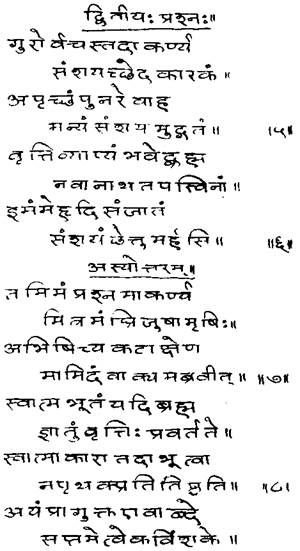 द्वितीयः प्रश्नः॥
गुरोर्वचस्तदाकर्ण्य
संशयच्छेदकारकं॥
अपृच्छं पुनरेवाह
मन्यं संशयमुद्गतं॥ ॥५॥
वृत्तिव्याप्यं भवेद्ब्रह्म
नवानाथ तपस्विनां॥
इमं मे हृदि संजातं
संशयं छेत्तुमर्हसि॥ ॥६॥
अस्योत्तरम्॥
तमिमं प्रश्नमाकर्ण्य
मित्रमंघ्रिजुषामृषिः॥
अभिषिच्य कटाक्षेण
मामिदं वाक्यमब्रवीत्॥ ॥७॥
स्वात्मभूतं यदि ब्रह्म
ज्ञातुं वृत्तिः प्रवर्तते॥
स्वात्माकारा तदा भूत्वा
न पृथक्प्रतितिष्ठति॥ ॥८॥
अयं प्रागुक्त एवाब्दे
सप्तमेत्वेकविंशके॥